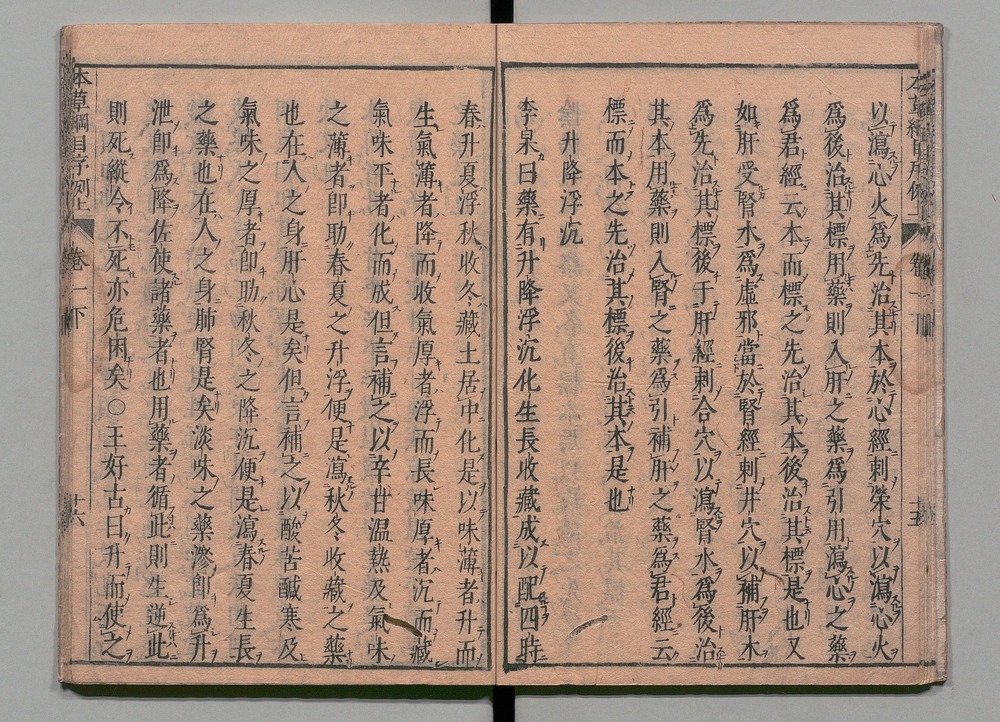 以瀉心火爲先治其本於心經刺滎穴以瀉心火
爲後治其標用藥則入肝之藥爲引用瀉心之藥
爲君經云本而標之先治其本後治其標是也又
如肝受腎水爲虛邪當於腎經刺井穴以補肝木
爲先治其標後于肝經刺合穴以瀉腎水爲後治
其本用藥則入腎之藥爲引補肝之藥爲君經云
標而本之先治其標後治其本是也
升降浮沉
李杲曰藥有升降浮沉化生長收藏成以配四時
春升夏浮秋收冬藏土居中化是以味薄者升而
生氣薄者降而收氣厚者浮而長味厚者沉而藏
氣味平者化而成但言補之以辛甘溫熱及氣味
之薄者卽助春夏之升浮便是瀉秋冬收藏之藥
也在人之身肝心是矣但言補之以酸苦鹹寒及
氣味之厚者卽助秋冬之降沉便是瀉春夏生長
之藥也在人之身肺腎是矣淡味之藥滲卽爲升
泄卽爲降佐使諸藥者也用藥者循此則生逆此
則死縱令不死亦危困矣○王好古曰升而使之
本草綱目序例上 卷一下 十六